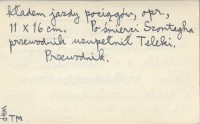 kładem jazdy pociągów, opr.,
11 x 16 cm. Po śmierci Szontagha
przewodnik uzupełnił Teleki.
Przewodnik.
TM